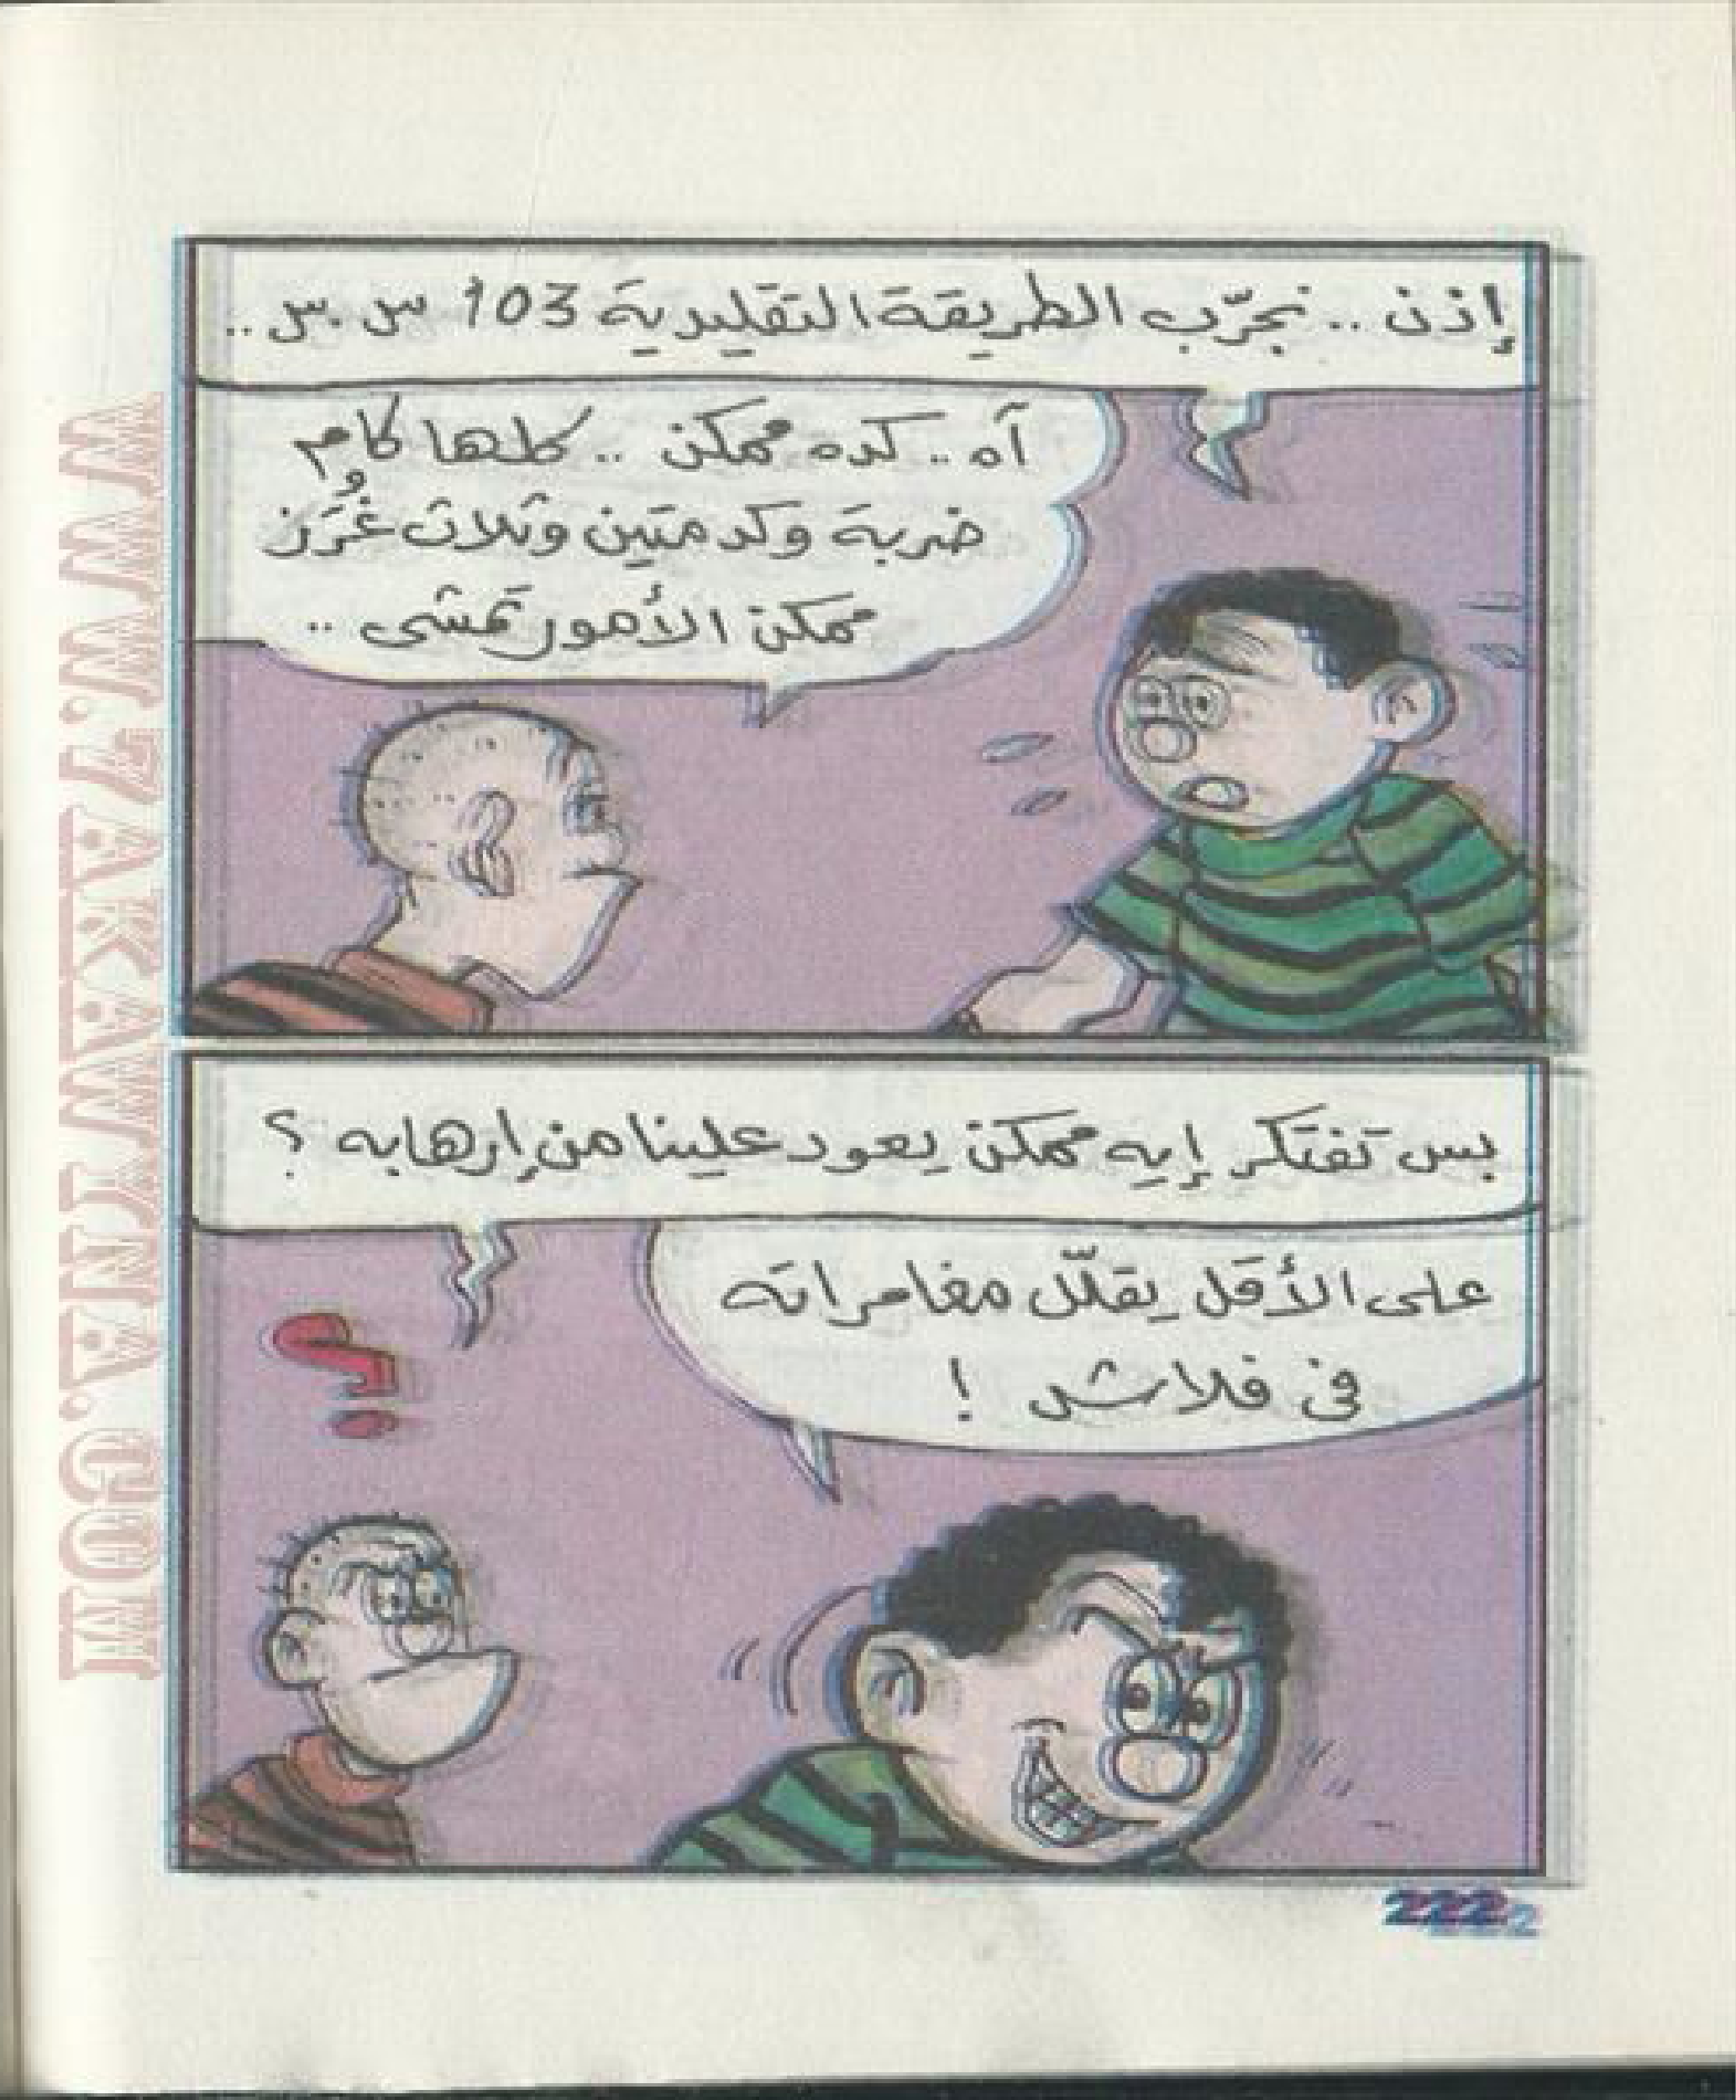 إذن .. نجرّب الطريقة التقليدية 103 س.س..
آه .. كده ممكن .. كلها كام
ضربة وكدمتين وتلات غُرَز
ممكن الأمور تمشى ..
بس تفتكر إيه ممكن يعود علينا من إرهابه ؟
على الأقل يقلّل مغامراته
فى فلاش !
؟
222
WWW.7AKAWTNA.COM